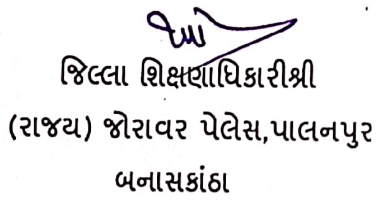 જિલ્લા શિક્ષણાધિકારીશ્રી
(રાજય) જોરાવર પેલેસ,પાલનપુર
બનાસકાંઠા